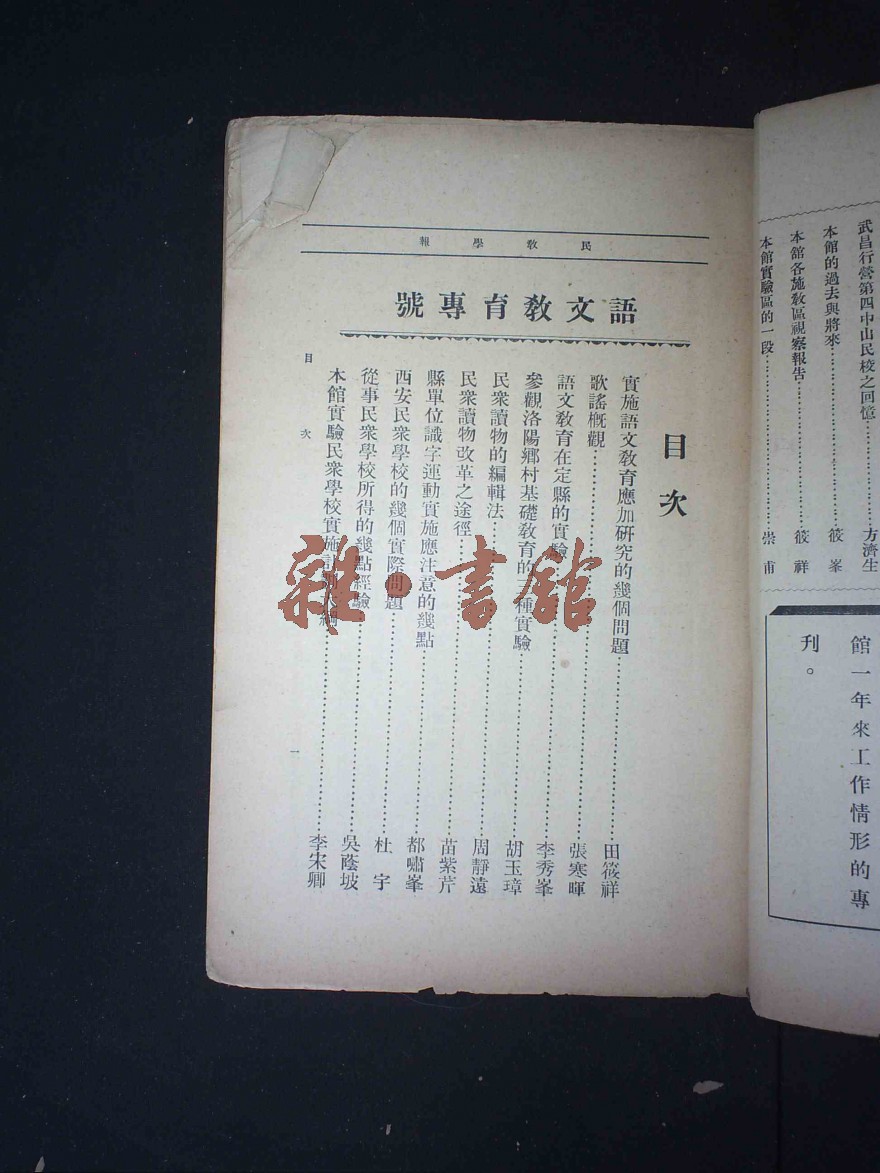 武昌行營第四中山民校之回憶……方濟生
本館的過去與將來……筱峯
本舘各施教區視察報告……筱祥
本館實驗區的一段……崇甫
館一年來工作情形的專
刊。
民教學報
語文教育專號
目次
實施語文教育應加研究的幾個問題……田筱祥
歌謠概觀……張寒暉
語文教育在定縣的實驗……李秀峯
參觀洛陽鄉村基礎教育的一種實驗……胡玉璋
民衆讀物的編輯法……周靜遠
民衆讀物改革之途徑……苗紫芹
縣單位識字運動實施應注意的幾點……都嘯峯
西安民衆學校的幾個實際問題……杜宇
從事民衆學校所得的幾點經驗……吳蔭坡
本館實驗民衆學校實施計劃大綱……李宋卿
目次
一
雜·書館